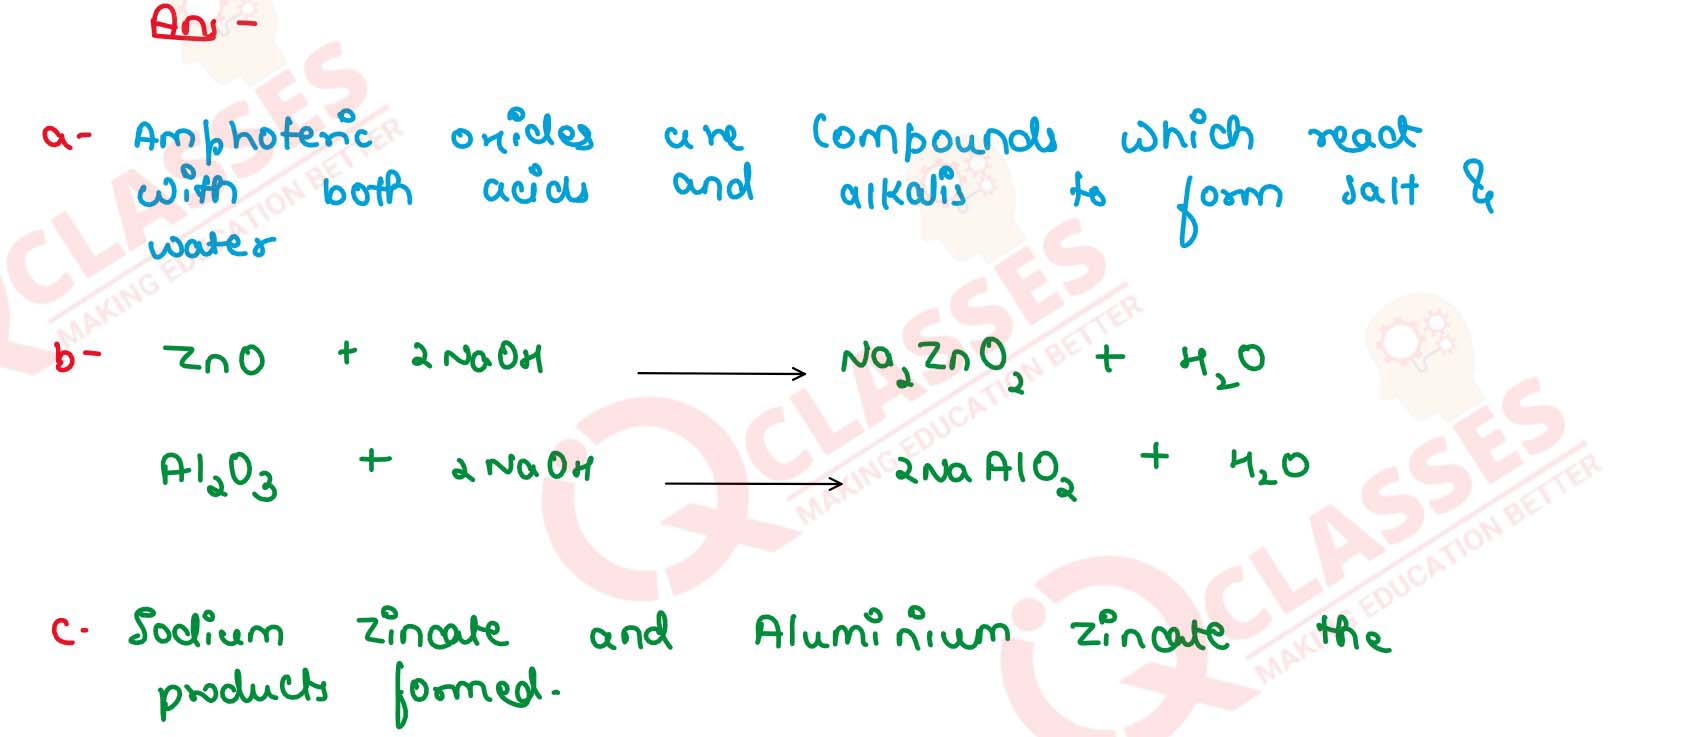 Ans -
a- Amphoteric oxides are Compounds which react
with both acids and alkalis to form salt &
water
b- ZnO + 2NaOH → Na₂ZnO₂ + H₂O
Al₂O₃ + 2NaOH → 2NaAlO₂ + H₂O
c- Sodium zincate and Aluminium zincate the
products formed.
CLASSES
MAKING EDUCATION BETTER
CLASSES
MAKING EDUCATION BETTER
CLASSES
MAKING EDUCATION BETTER